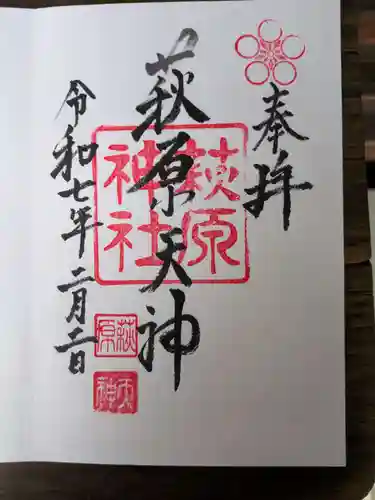 奉拝
萩原天神
令和七年二月二日
萩原
神社
萩原
天神